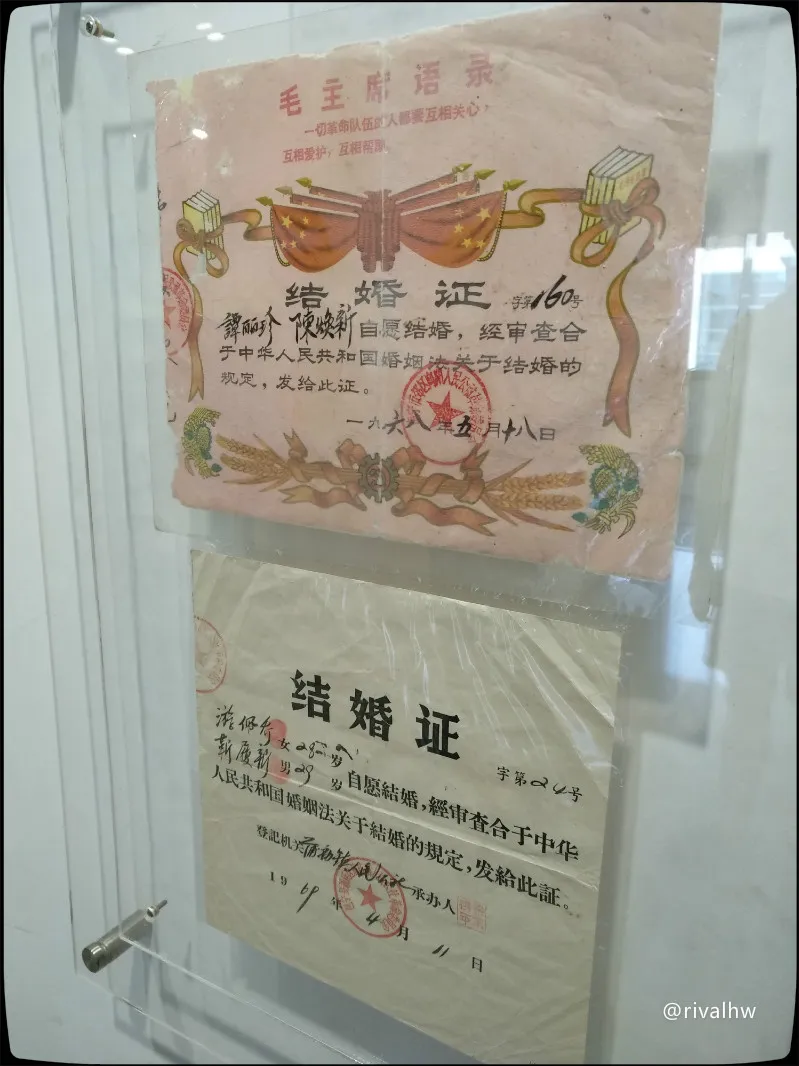 毛主席语录
一切革命队伍的人都要互相关心,
互相爱护,互相帮助
结婚证 字第160号
譚丽珍 陳焕新 自愿结婚，经审查合
于中华人民共和国婚姻法关于结婚的
规定，发给此证。
一九六八年五月十八日
结婚证
字第24号
女28岁
男29岁 自愿結婚，經审查合于中华
人民共和国婚姻法关于結婚的規定，发給此証。
登記机关 人民公社 承办人
1969年4月11日
@rivalhw